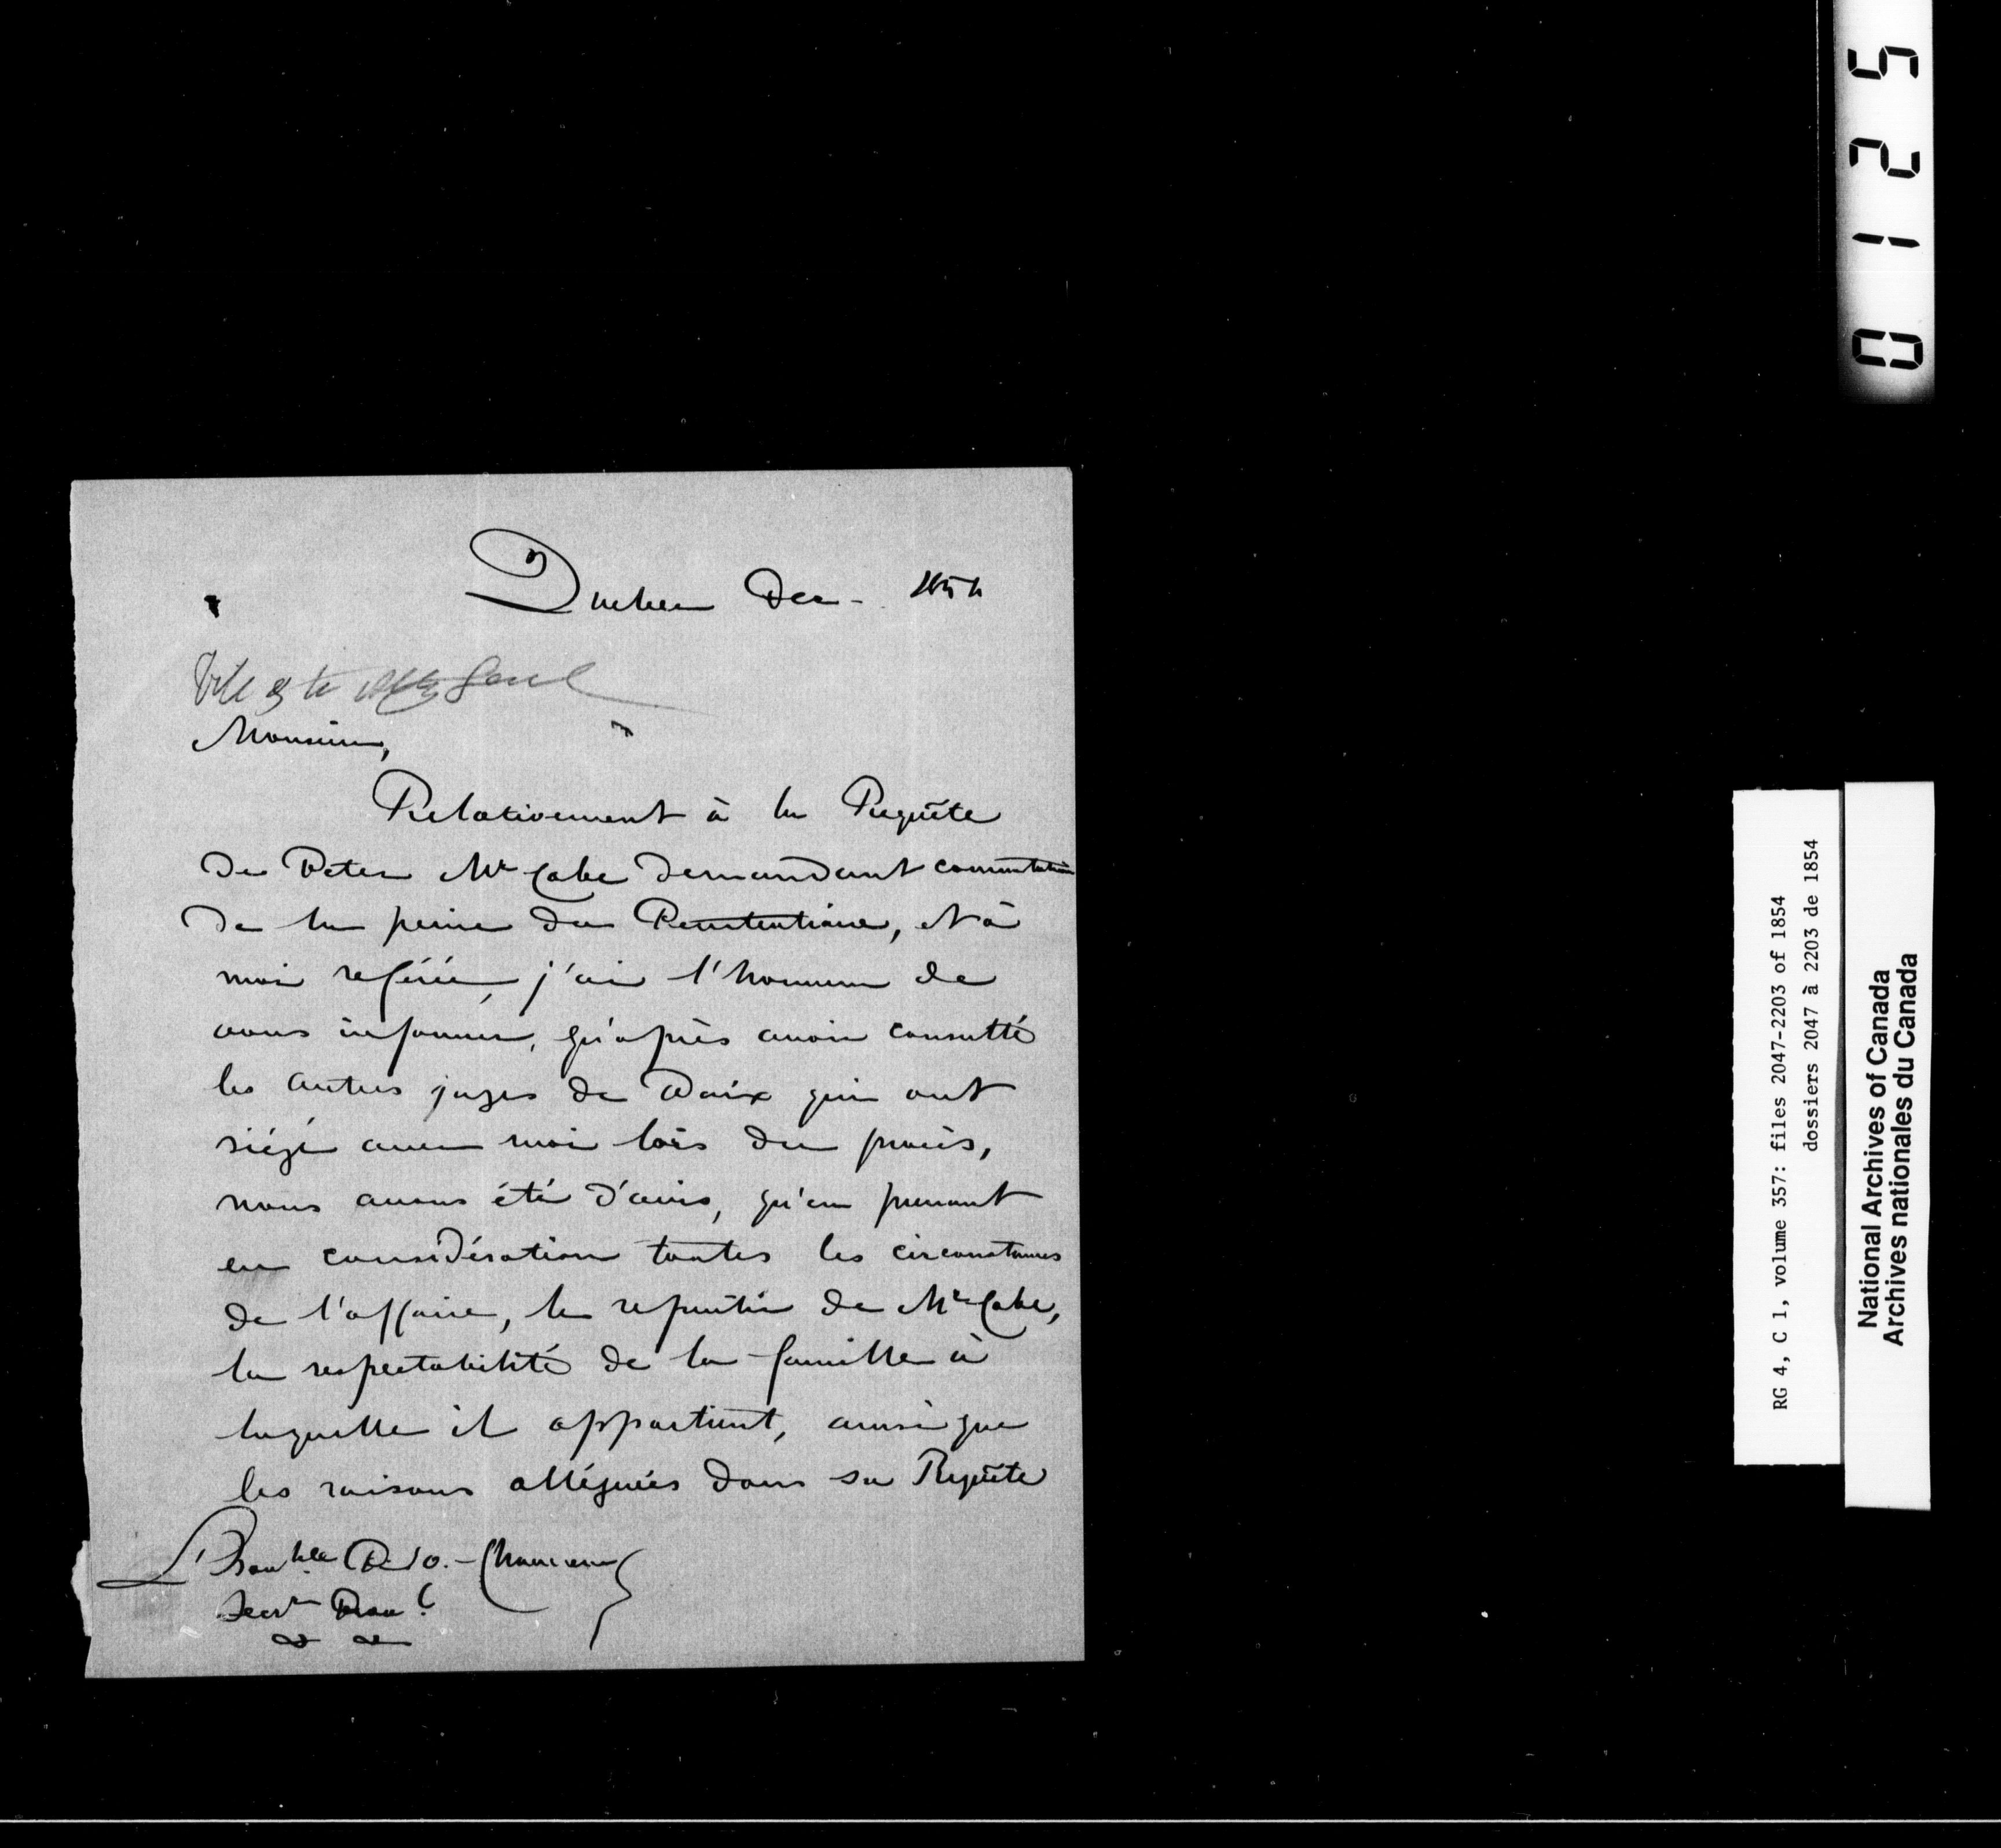 Quebec Dec - 1854
Monsieur,
Relativement à la Requête
de Peter McCabe demandant commutation
de la peine du Penitentiaire, et à
moi referée, j'ai l'honneur de
vous informer, qu'après avoir consulté
les autres juges de Paix qui ont
siégé avec moi lors du procès,
nous avons été d'avis, qu'en prenant
en considération toutes les circonstances
de l'affaire, le repentir de McCabe,
la respectabilité de la famille à
laquelle il appartient, ainsi que
les raisons alléguées dans sa Requête
L'Honble P. J. O. Chauveau
Secre Provl
0125
RG 4, C 1, volume 357: files 2047-2203 of 1854
dossiers 2047 à 2203 de 1854
National Archives of Canada
Archives nationales du Canada